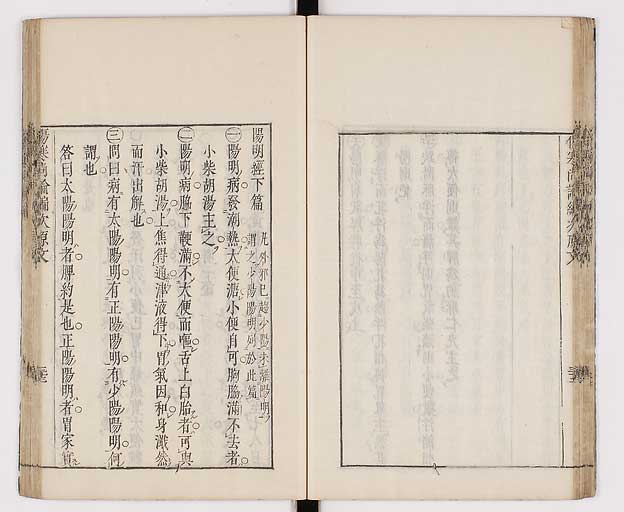 陽明經下篇 凡外邪已趨少陽未離陽明
謂之少陽陽明列於此篇
㊀陽明病發潮熱大便溏小便自可胸脇滿不去者
小柴胡湯主之
㊁陽明病脇下鞕滿不大便而嘔舌上白胎者可與
小柴胡湯上焦得通津液得下胃氣因和身濈然
而汗出解也
㊂問曰病有太陽陽明有正陽陽明有少陽陽明何
謂也
答曰太陽陽明者脾約是也正陽陽明者胃家實